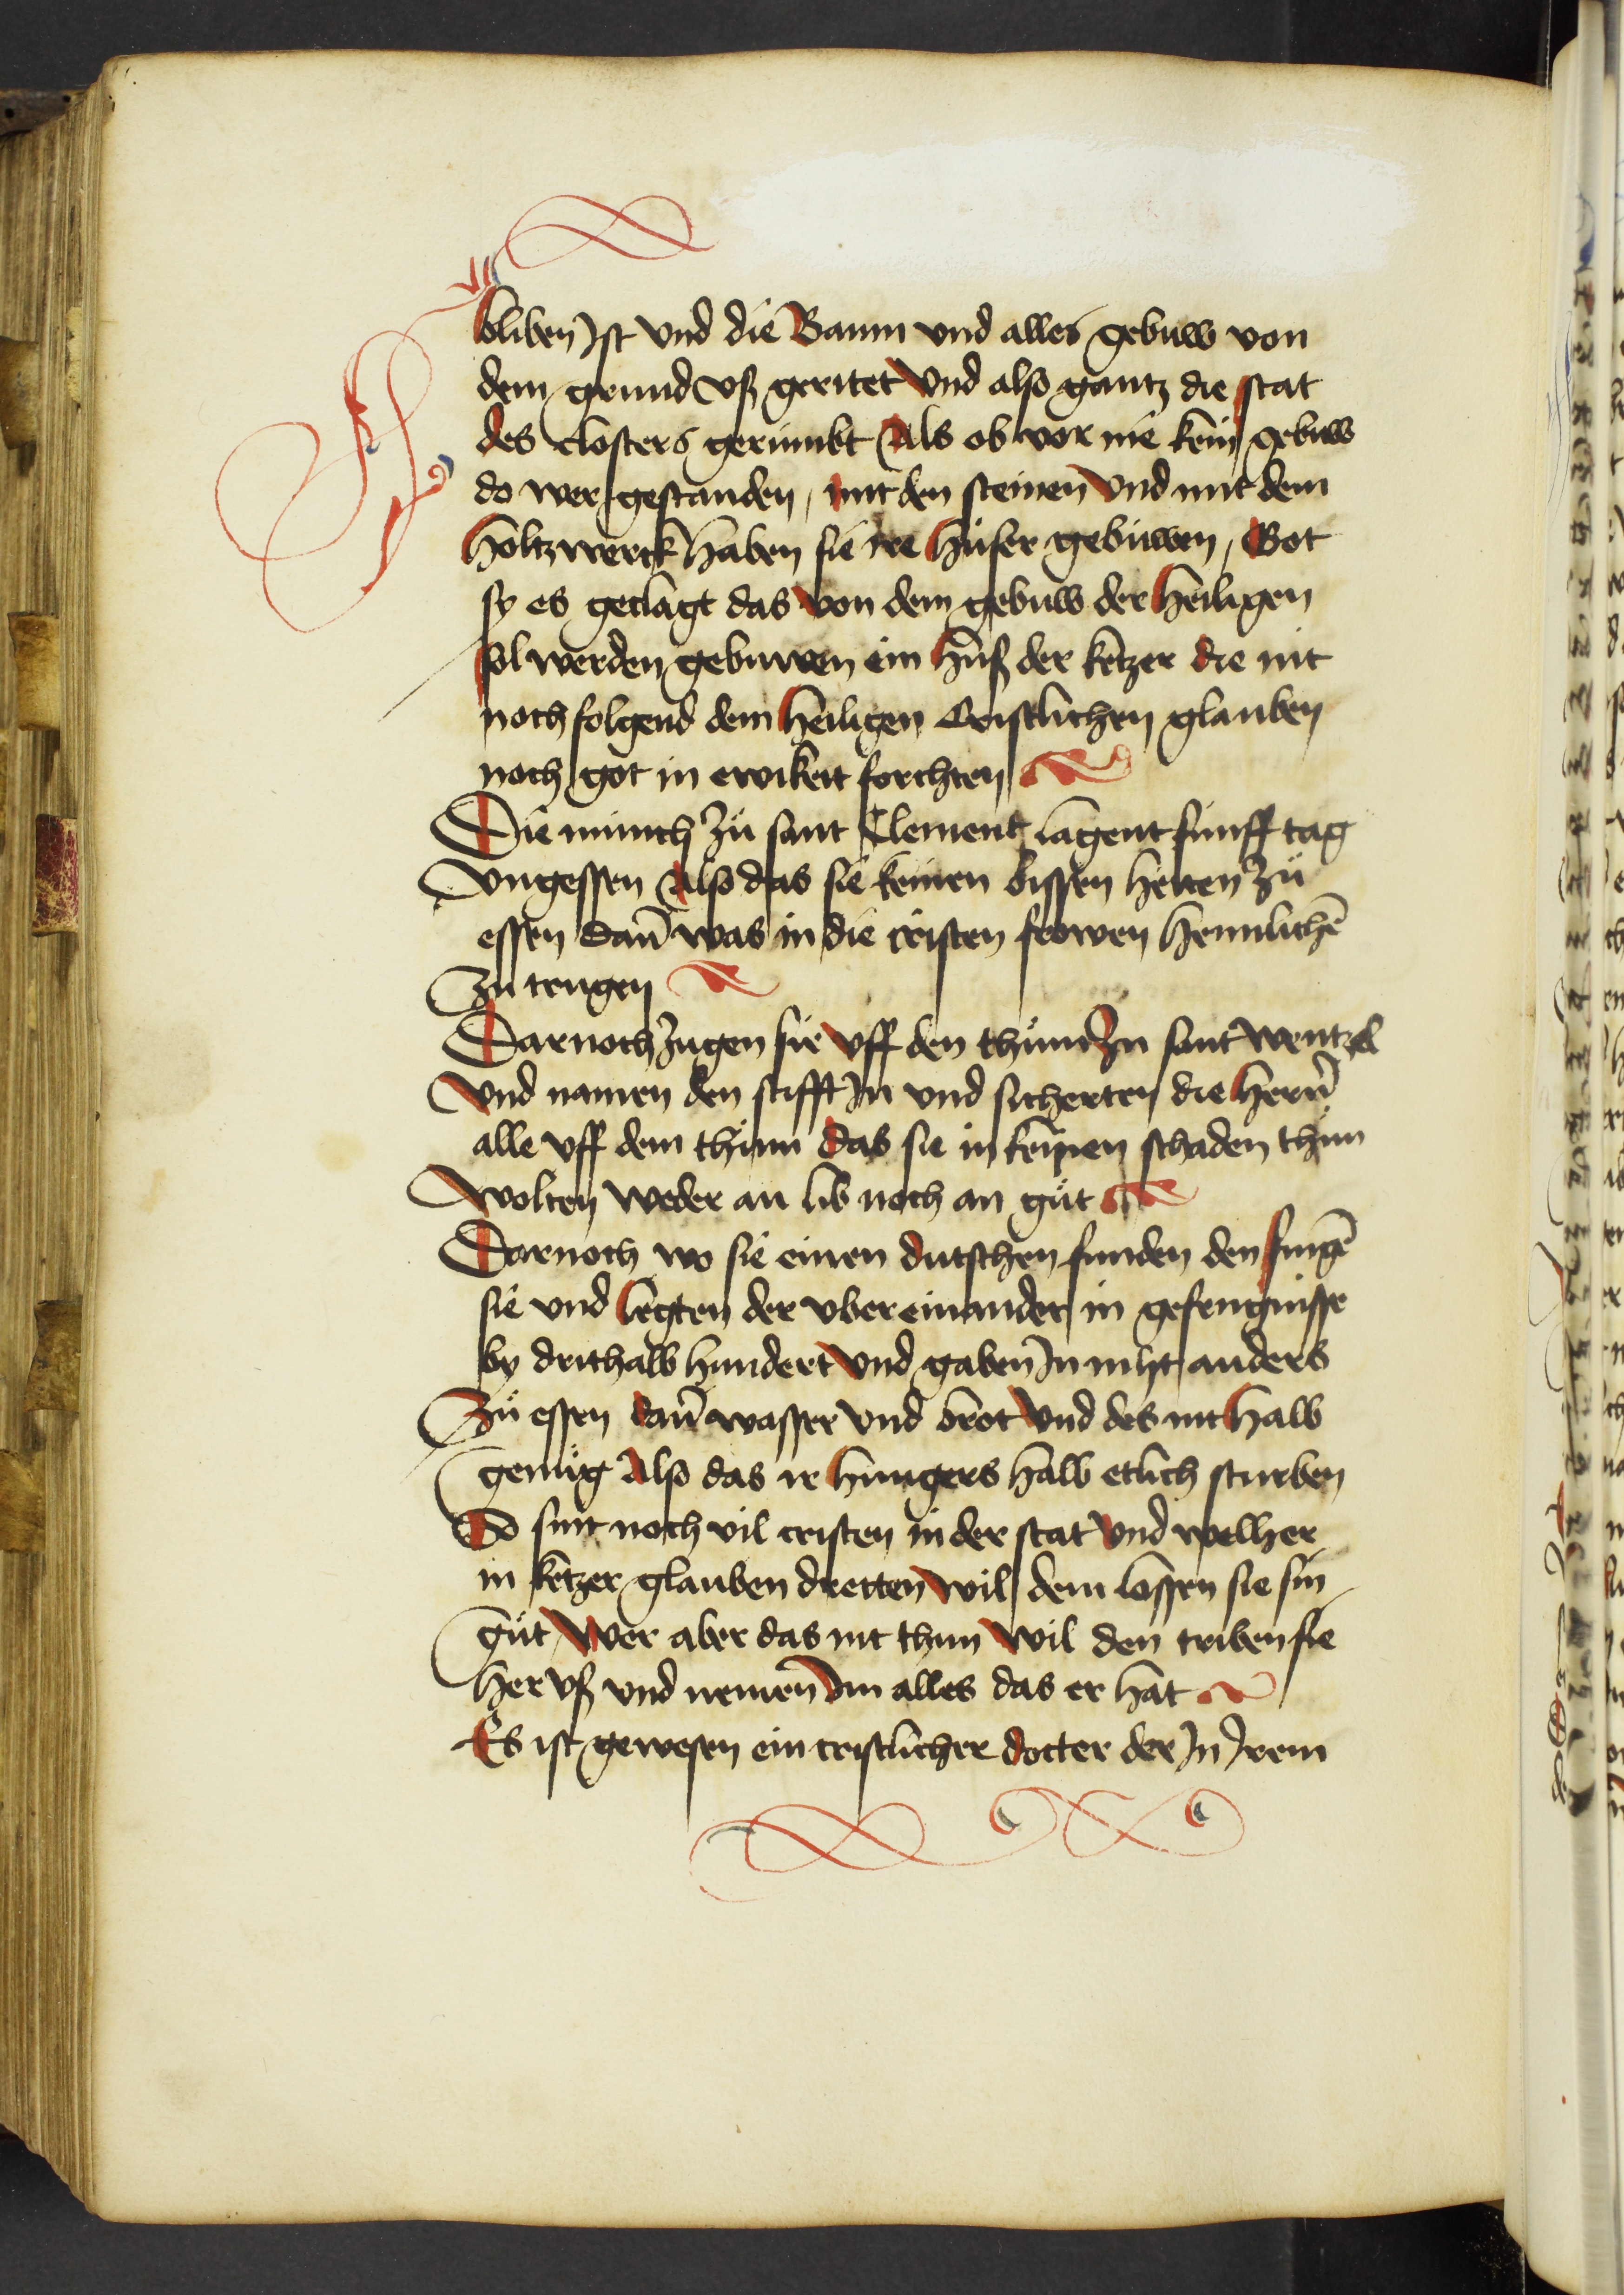 bliben Jst vnd die Baum vnd alles gebuw von
dem grund vß geritet Vnd also gantz die stat
des closters gerumbt Als ob vor nie kein gebuw
do wer gestanden, mit den steinen Vnd mit dem
holtzwerck haben sie ire hüser gebuwen, Got
sy es geclagt das von dem gebuw der heiligen
sol werden gebuwen ein huß der ketzer die nit
noch folgend dem heiligen Cristlichen glauben
noch got in ewikeit forchten
Die münch zů sant Clement lagent fünff tag
vngessen Also das sie keinen bissen hetten zů
essen dañ was in die cristen frowen heimlichē
zu trugen
Darnoch zugen sie vff den thum zu sant wentzel
Vnd namen den stifft Jn vnd sicherten die herñ
alle vff dem thům das sie in keinen schaden thun
wolten weder an lib noch an gůt
Dornoch wo sie einen dutschen funden den fingē
sie vnd legten der vber einander in gefengnisse
by drithalb hundert Vnd gaben Jn niht anders
Zů essen dañ wasser vnd brot Vnd des nit halb
genůg Also das ir hungers halb etlich sturben
So sint noch vil cristen in der stat Vnd welher
in ketzer glauben dretten wil dem lossen sie sin
gůt Wer aber das nit thun wil den triben sie
her vß vnd nemen Jm alles das er hat
Es ist gewesen ein cristlicher docter der Jn Jrem